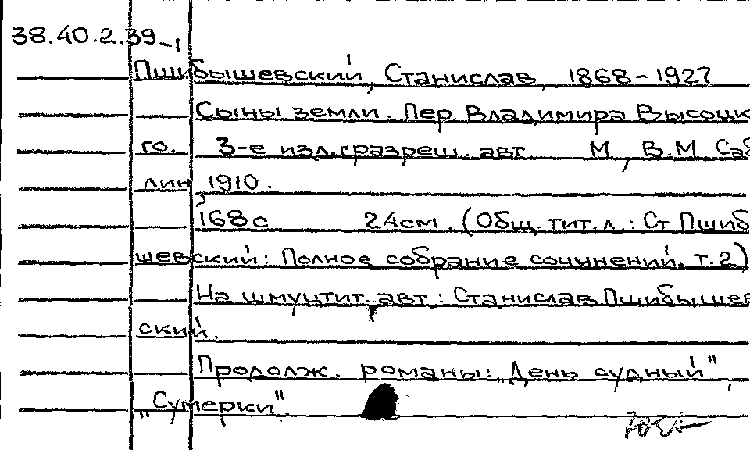 38.40.2.39-1
Пшибышевский, Станислав, 1868-1927
Сыны земли. Пер Владимира Высоцк
го. 3-е изд. с разреш. авт. М, В.М Саб
лин 1910.
168 с 24 см. (Общ. тит. л.: Ст Пшиб
шевский: Полное собрание сочинений, т. 2)
На шмуцтит. авт: Станислав Пшибышев
ский.
Продолж. романы: „День судный",
„Сумерки".